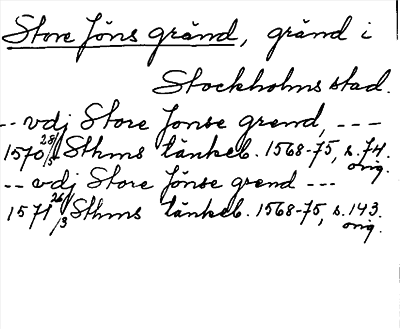 Store Jöns gränd, gränd i
Stockholms stad.
-- vdj Store Jonse grend, ---
1570 28/5 Sthms tänkeb. 1568-75, s. 74.
orig.
-- vdj Store Jönse grend ---
1571 26/3 Sthms tänkeb. 1568-75, s. 143.
orig.